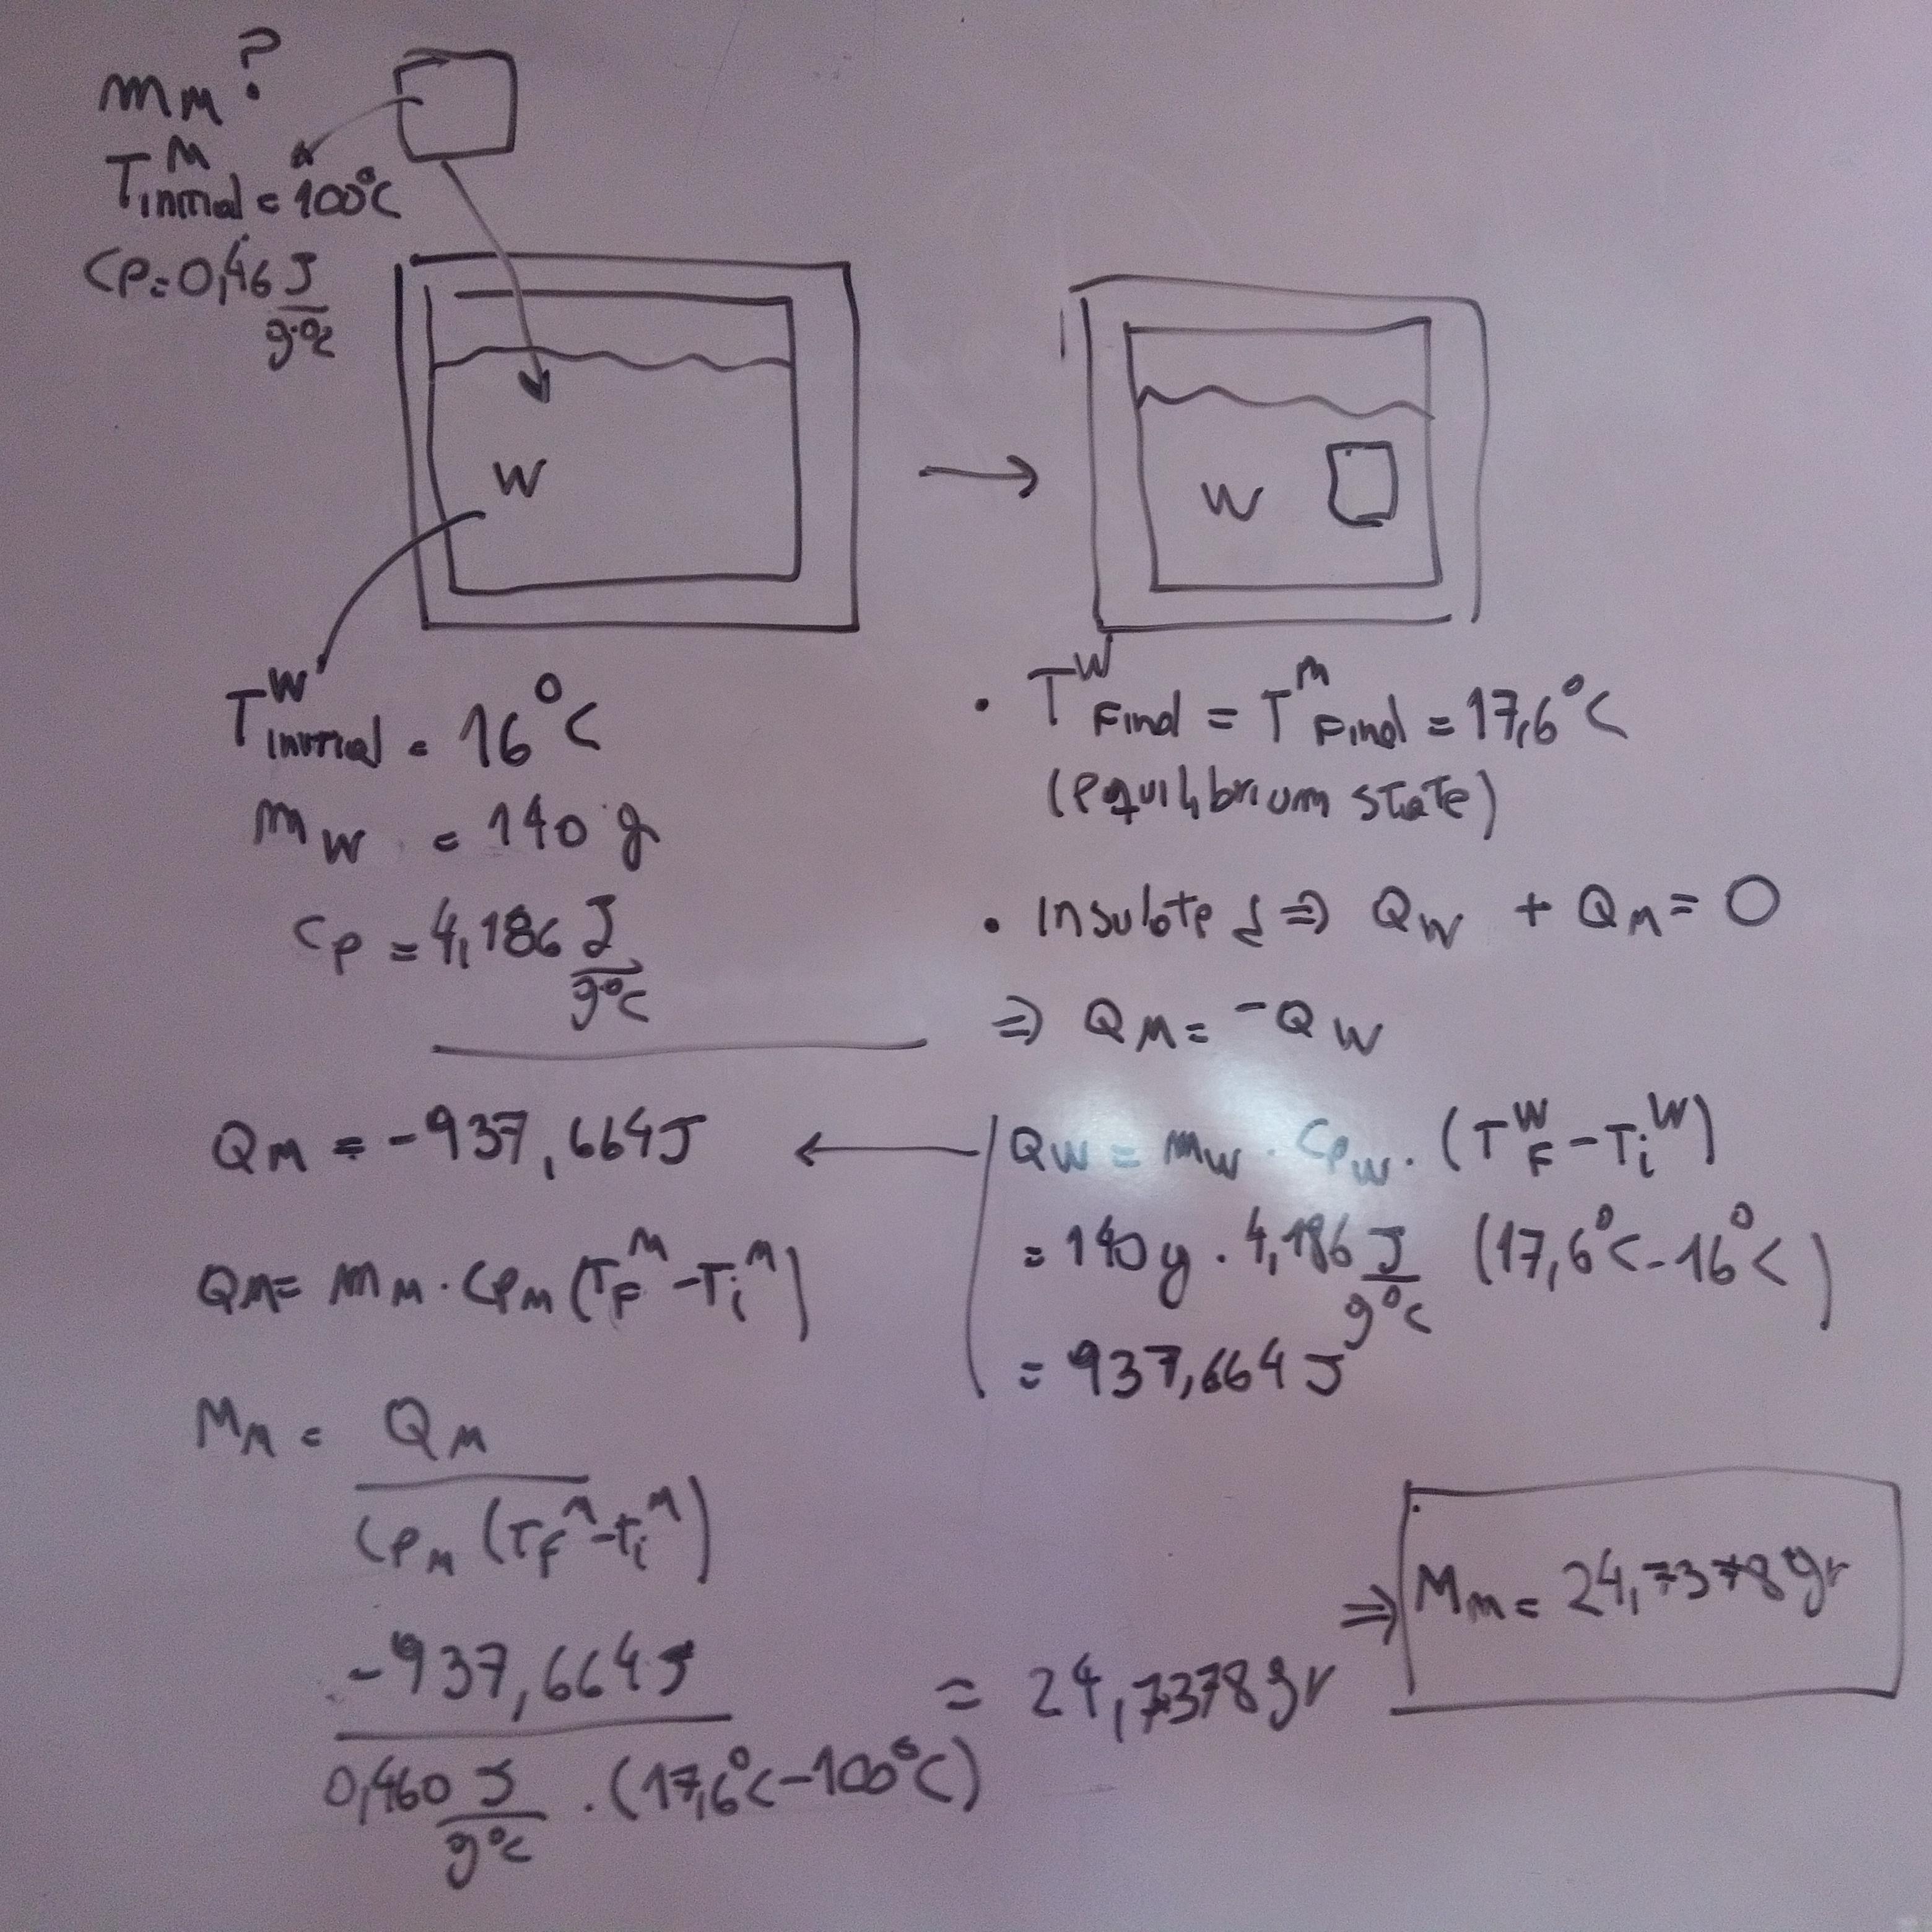 mM?
T^M initial = 100°C
Cp = 0,46 J/g·°C
W
W
T^W initial = 16°C
mW = 140 g
Cp = 4,186 J/g°C
• T^W Final = T^M Final = 17,6°C
(equilibrium state)
• Insulated ⇒ QW + QM = 0
⇒ QM = -QW
QW = mW · CpW · (T^W_F - Ti^W)
= 140g · 4,186 J/g°C (17,6°C - 16°C)
= 937,664 J
←
QM = -937,664J
QM = mM · CpM (T_F^M - Ti^M)
MM = QM / CpM (T_F^M - Ti^M)
-937,664J / 0,460 J/g°C · (17,6°C - 100°C) = 24,7378gr
⇒ Mm = 24,7378gr